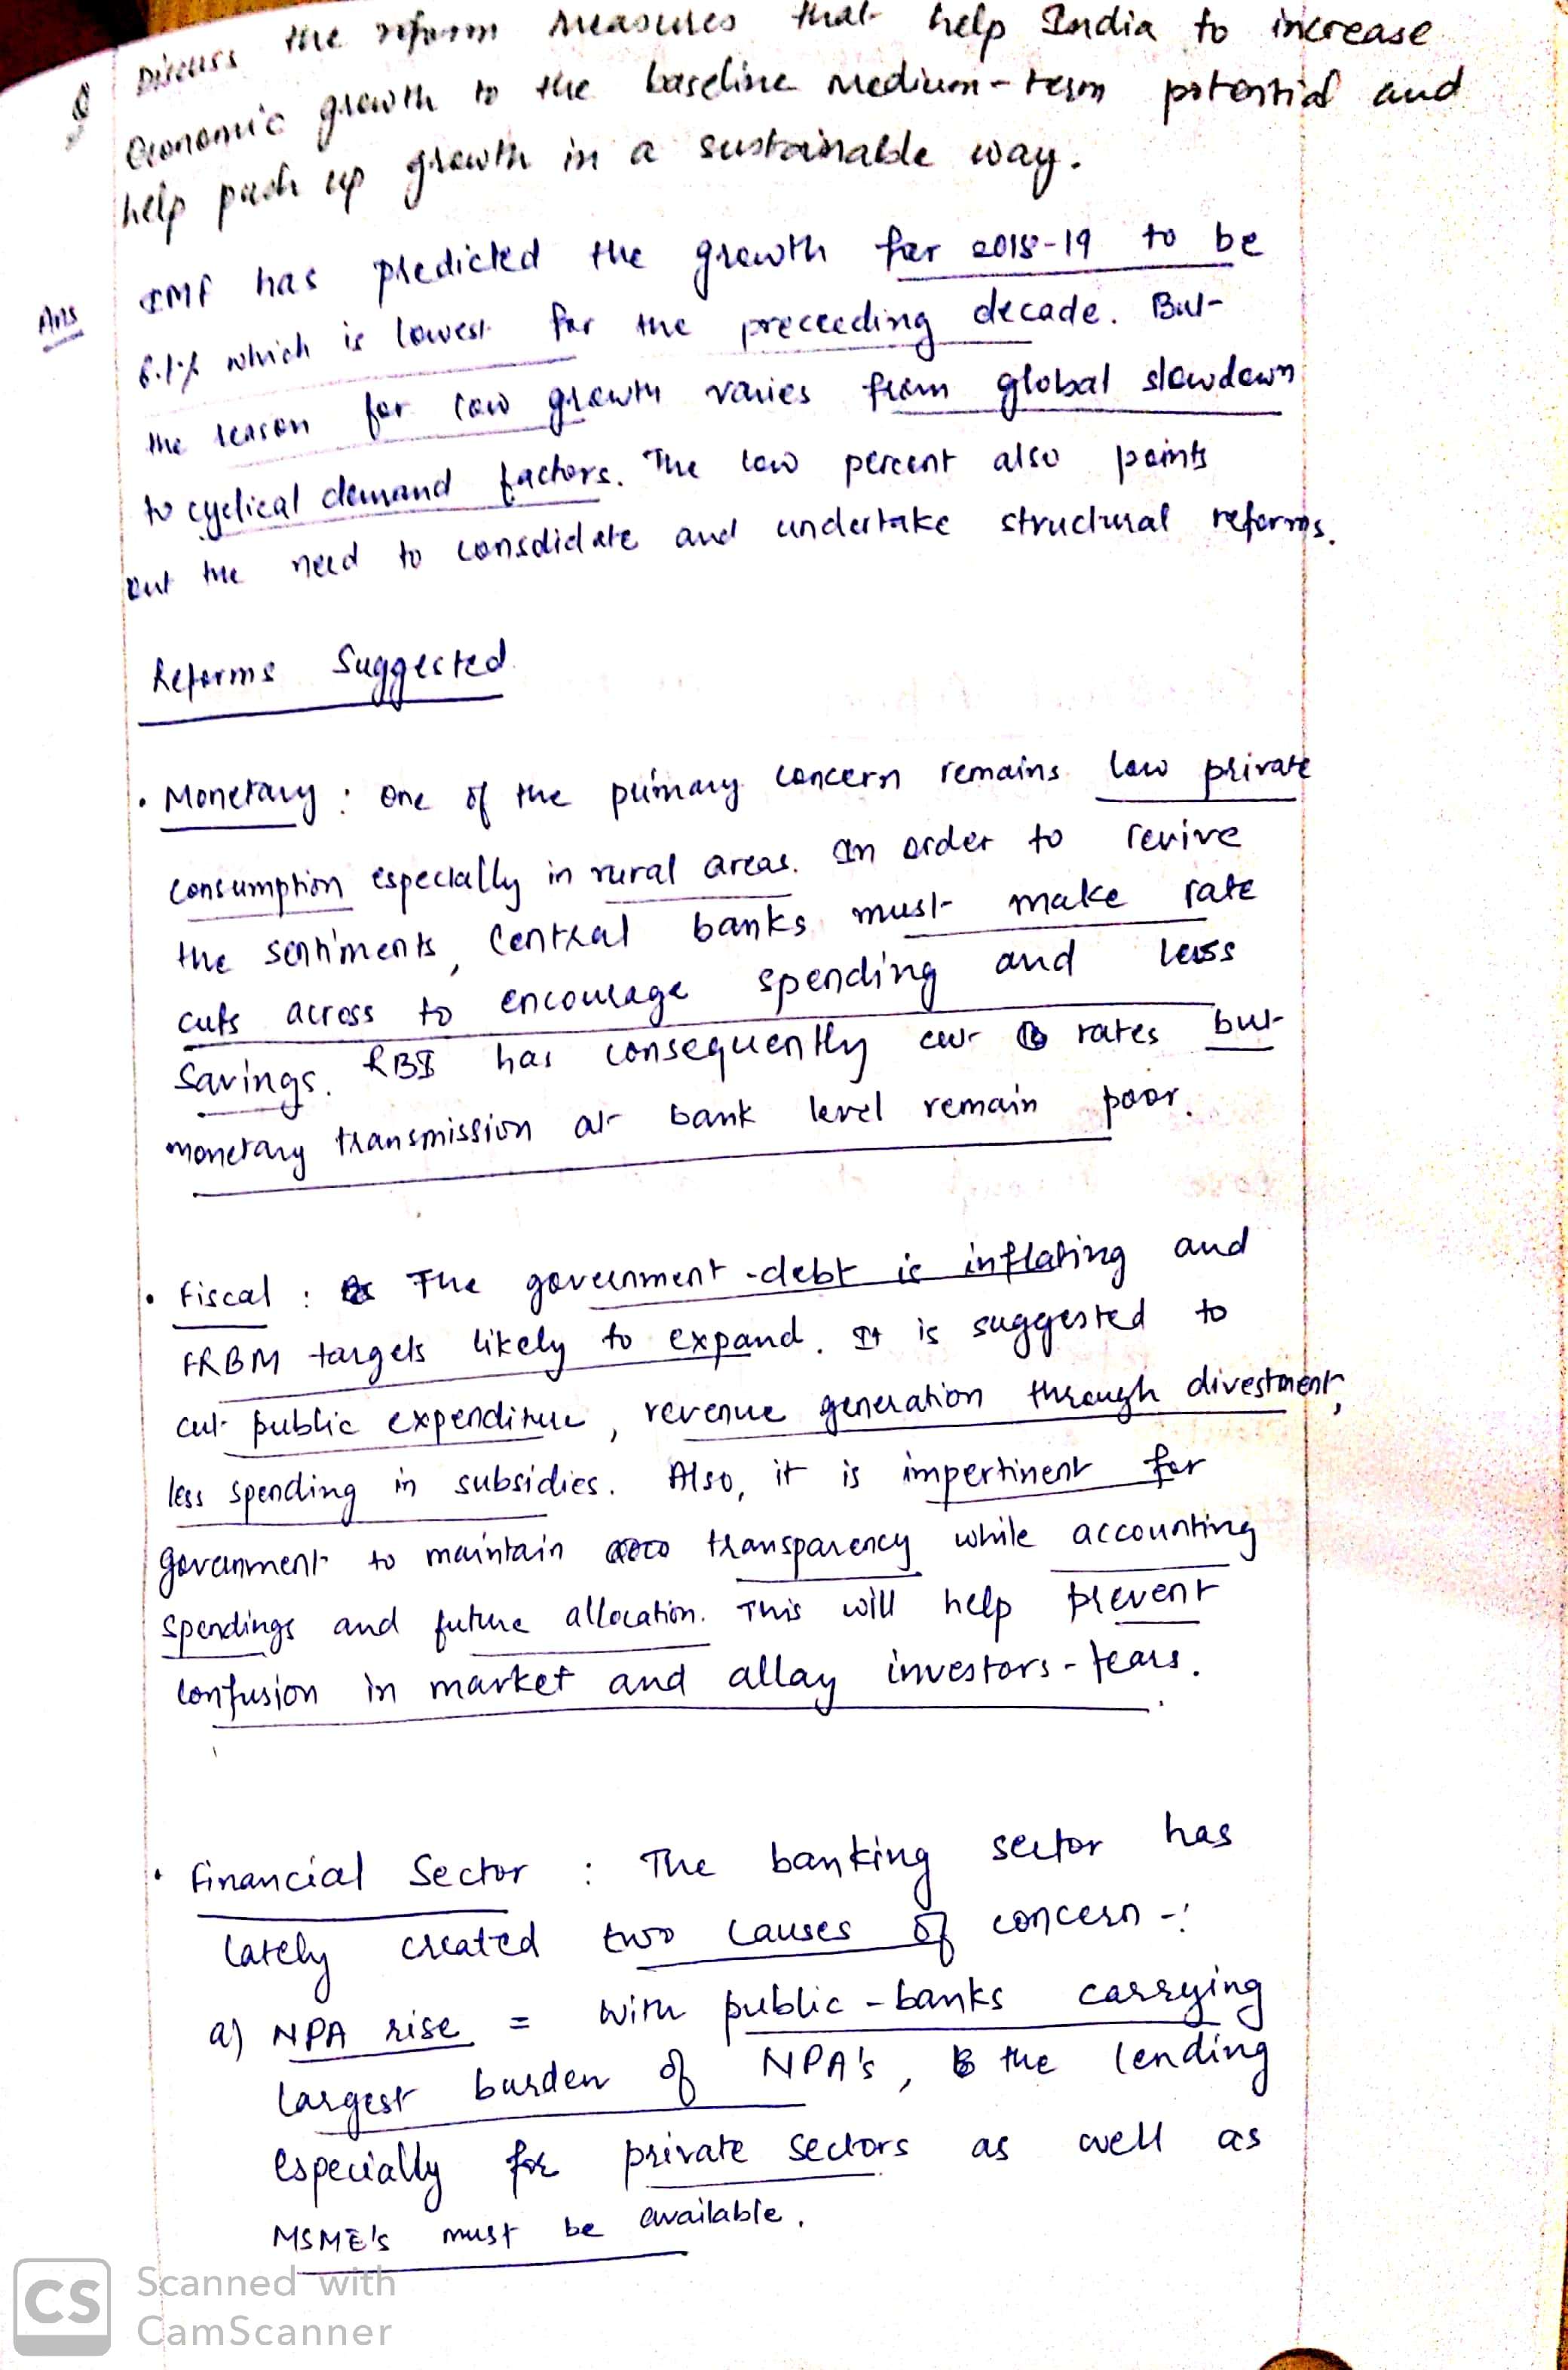 Q Discuss the reform measures that help India to increase
Economic growth to the baseline medium-term potential and
help push up growth in a sustainable way.
Ans IMF has predicted the growth for 2018-19 to be
6.1% which is lowest for the preceeding decade. But
the reason for low growth varies from global slowdown
to cyclical demand factors. The low percent also points
out the need to consolidate and undertake structural reforms.
Reforms Suggested
• Monetary : One of the primary concern remains low private
consumption especially in rural areas. In order to revive
the sentiments, Central banks must make rate
cuts across to encourage spending and less
savings. RBI has consequently cut rates but
monetary transmission at bank level remain poor.
• Fiscal : The government-debt is inflating and
FRBM targets likely to expand. It is suggested to
cut public expenditure, revenue generation through divestment,
less spending in subsidies. Also, it is impertinent for
government to maintain transparency while accounting
spendings and future allocation. This will help prevent
confusion in market and allay investors-fears.
• Financial Sector : The banking sector has
lately created two causes of concern -:
a) NPA rise = With public-banks carrying
largest burden of NPA's, the lending
especially for private sectors as well as
MSME's must be available.
CS Scanned with
CamScanner